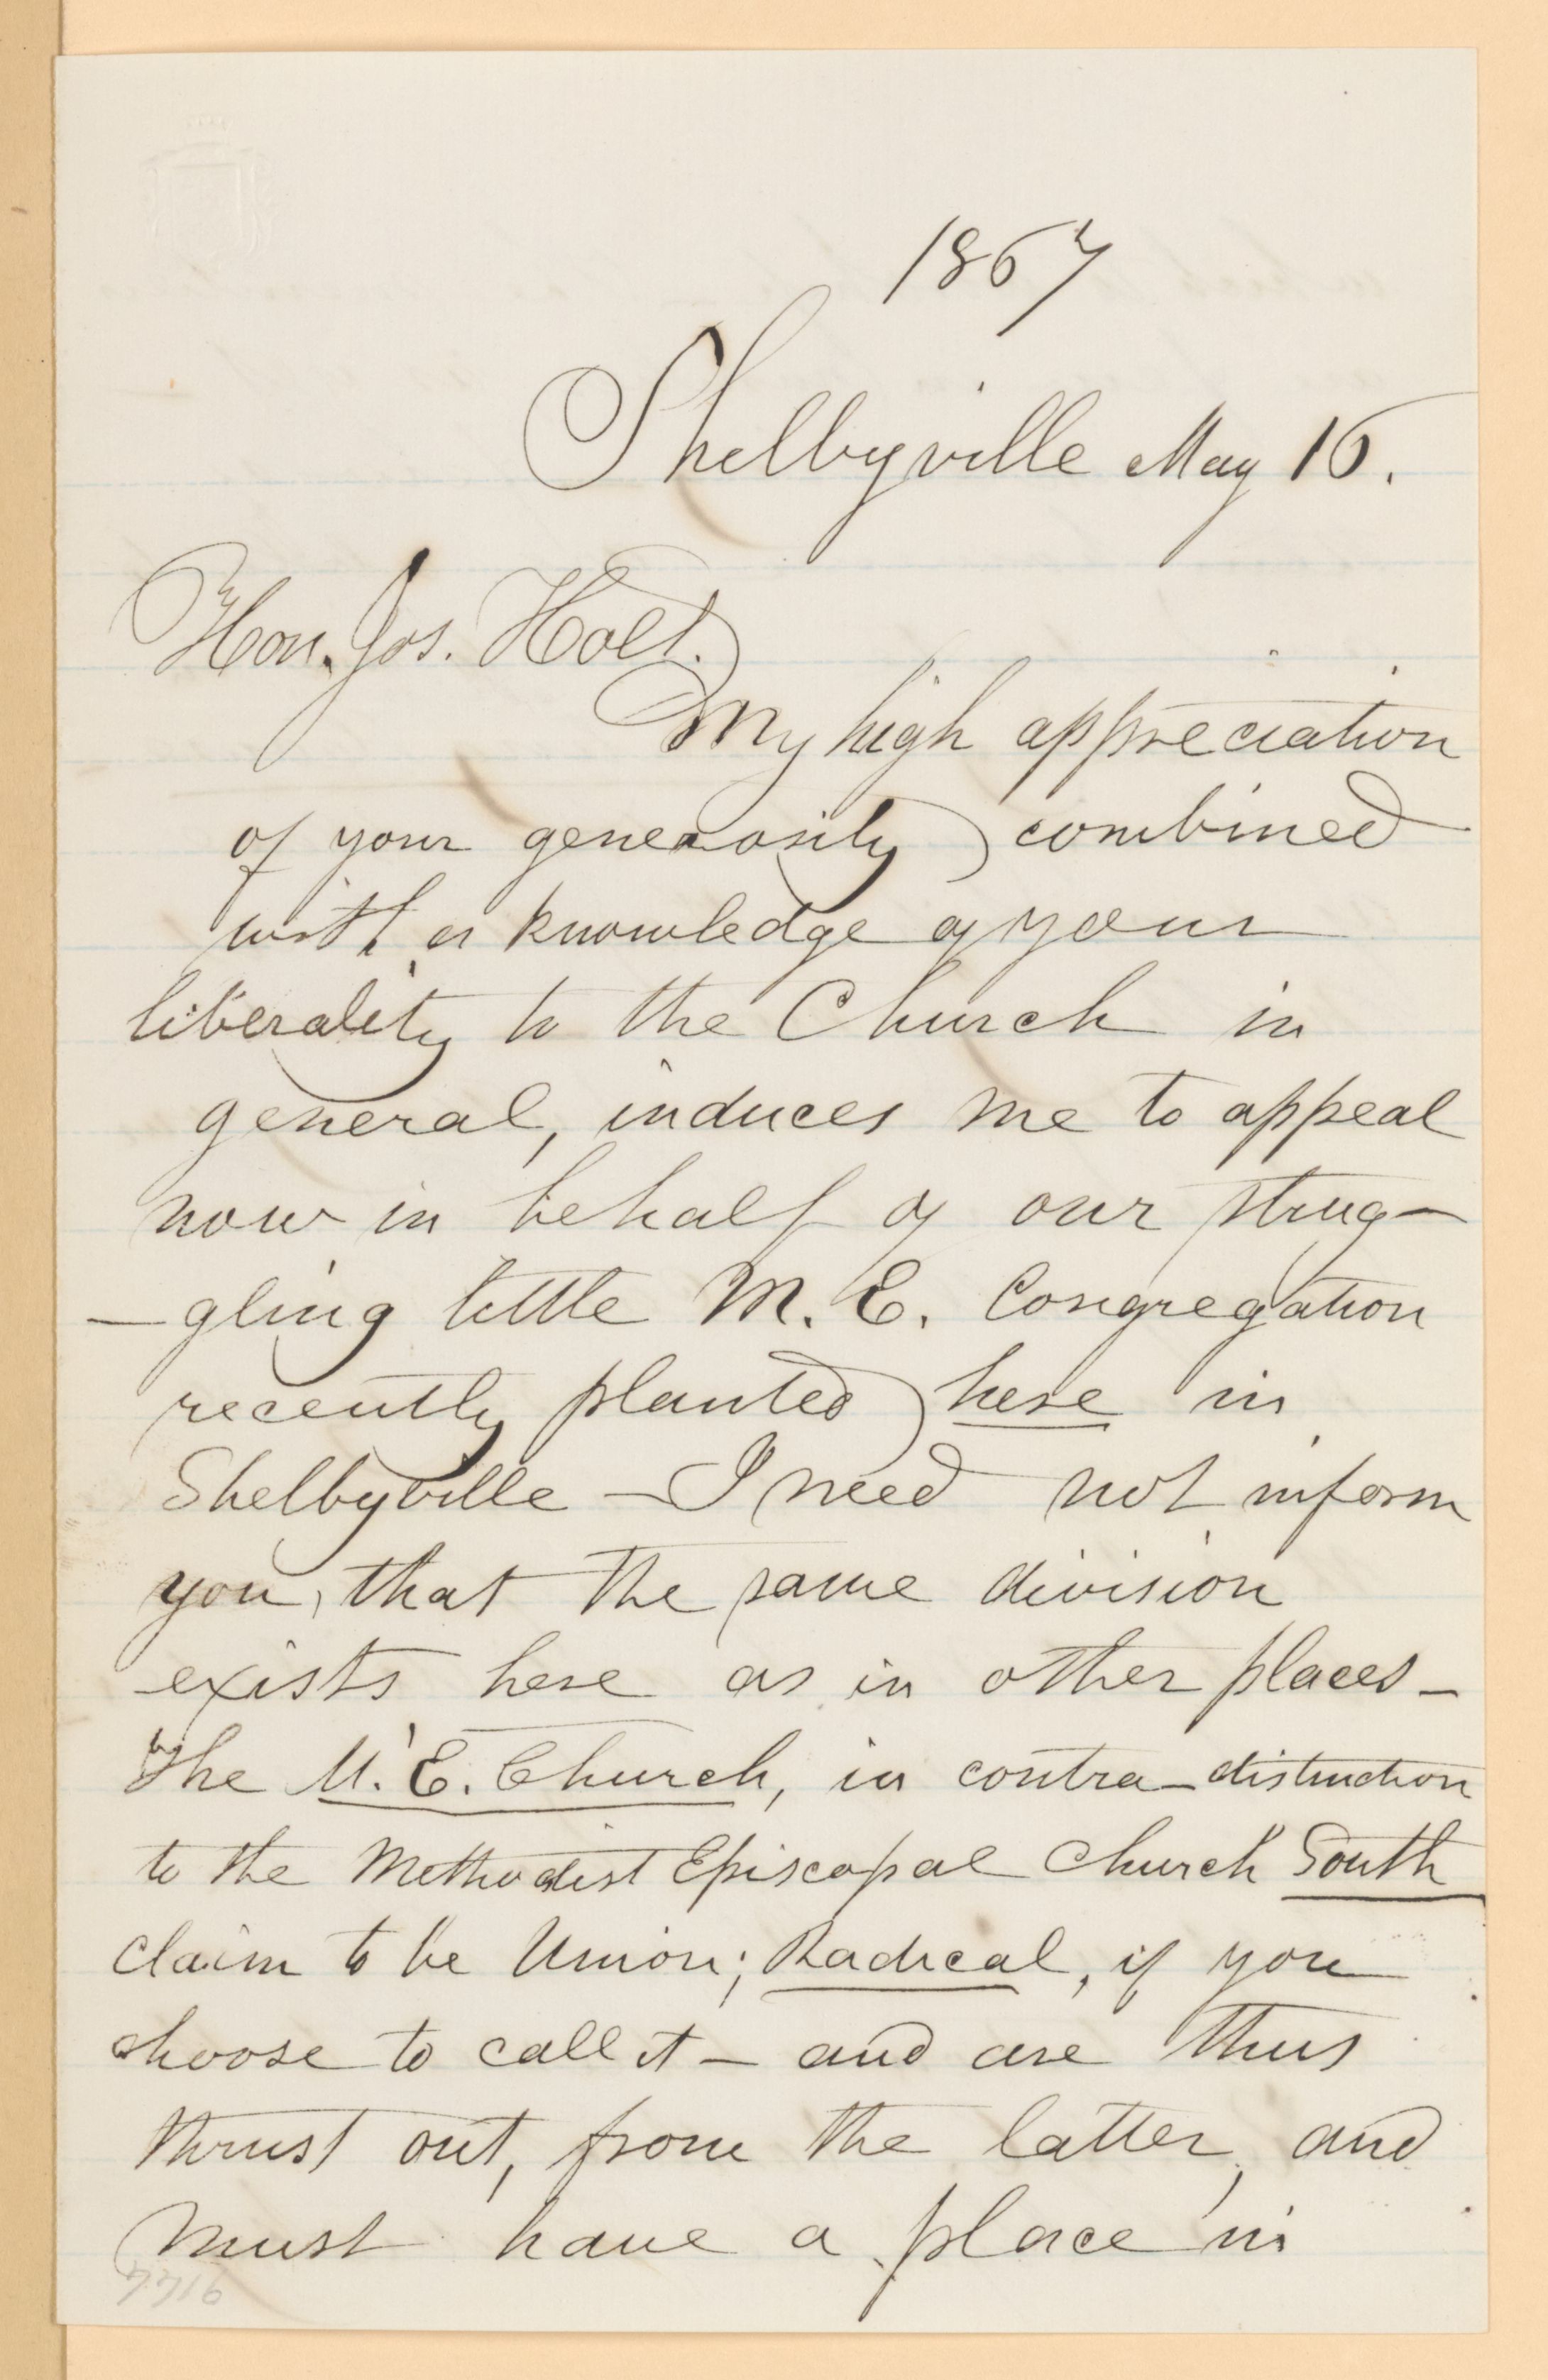 1867
Shelbyville May 16.
Hon. Jos. Holt.
My high appreciation
of your generosity combined
with a knowledge of your
liberality to the Church in
general, induces me to appeal
now in behalf of our strug-
-gling little M. E. Congregation
recently planted here in
Shelbyville - I need not inform
you, that the same division
exists here as in other places -
The M. E. Church, in contra-distinction
to the Methodist Episcopal Church South
claim to be Union; Radical, if you
choose to call it - and are thus
thrust out, from the latter, and
must have a place in